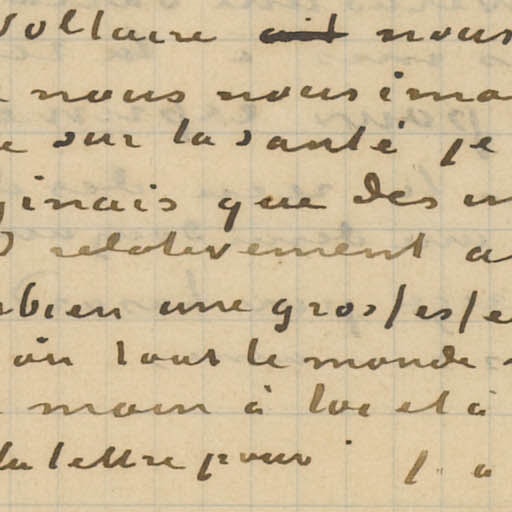 Voltaire nous
nous nous ima
sur la santé je
ginais que des
relativement a
bien une grossesse
où tout le monde
main à toi et à
la lettre pour